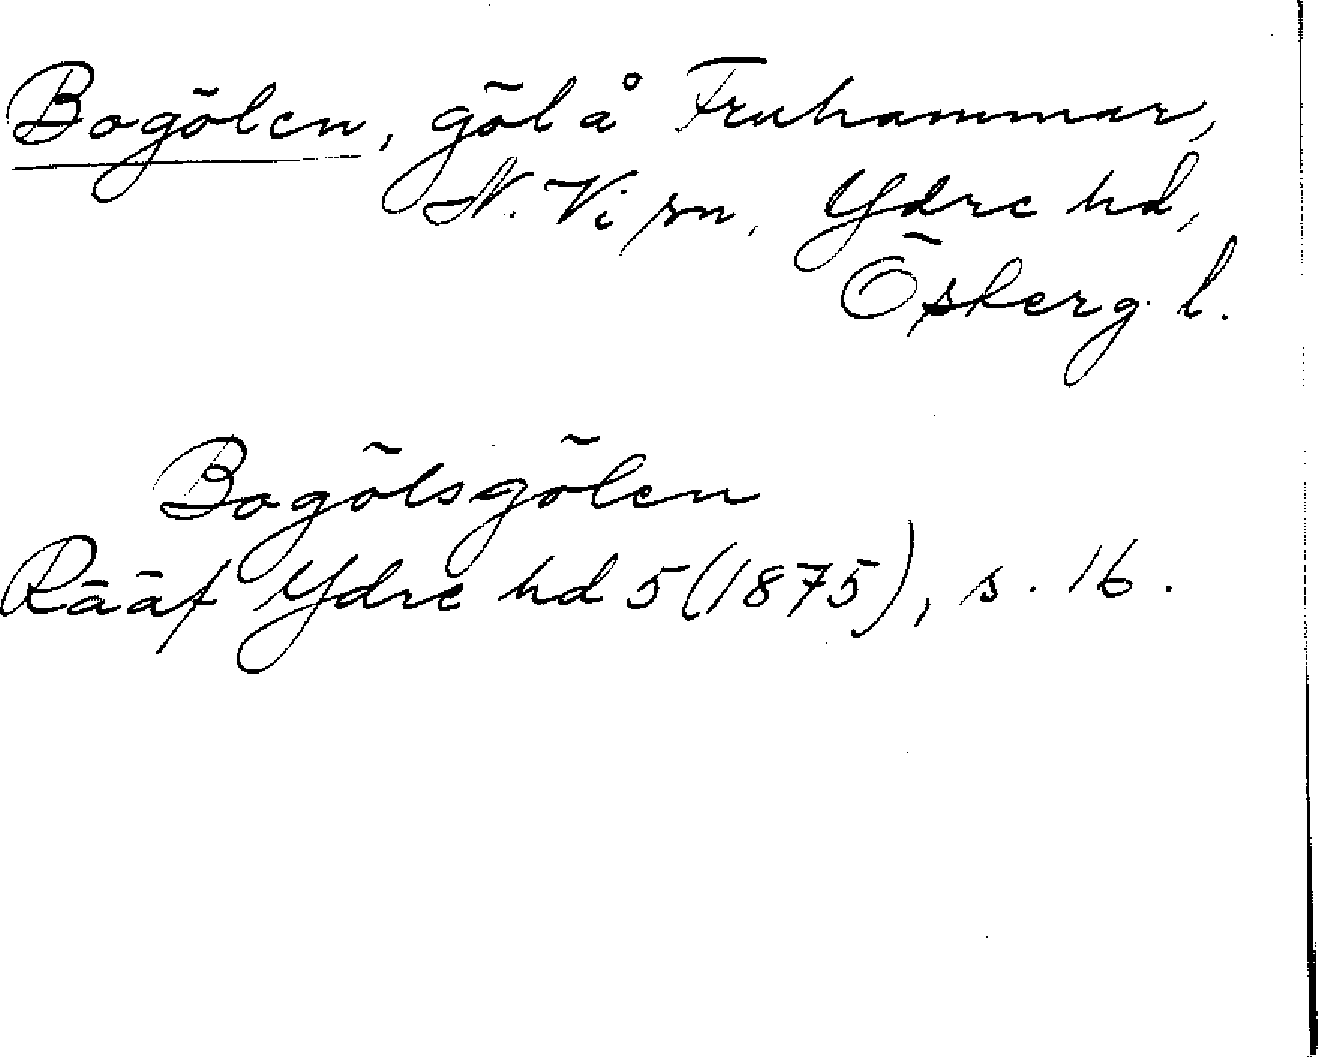 Bogölen, göl å Fruhammar,
N. Vi sn, Ydre hd,
Östergl.
Bogölsgölen
Rääf Ydre hd 5 (1875), s. 16.